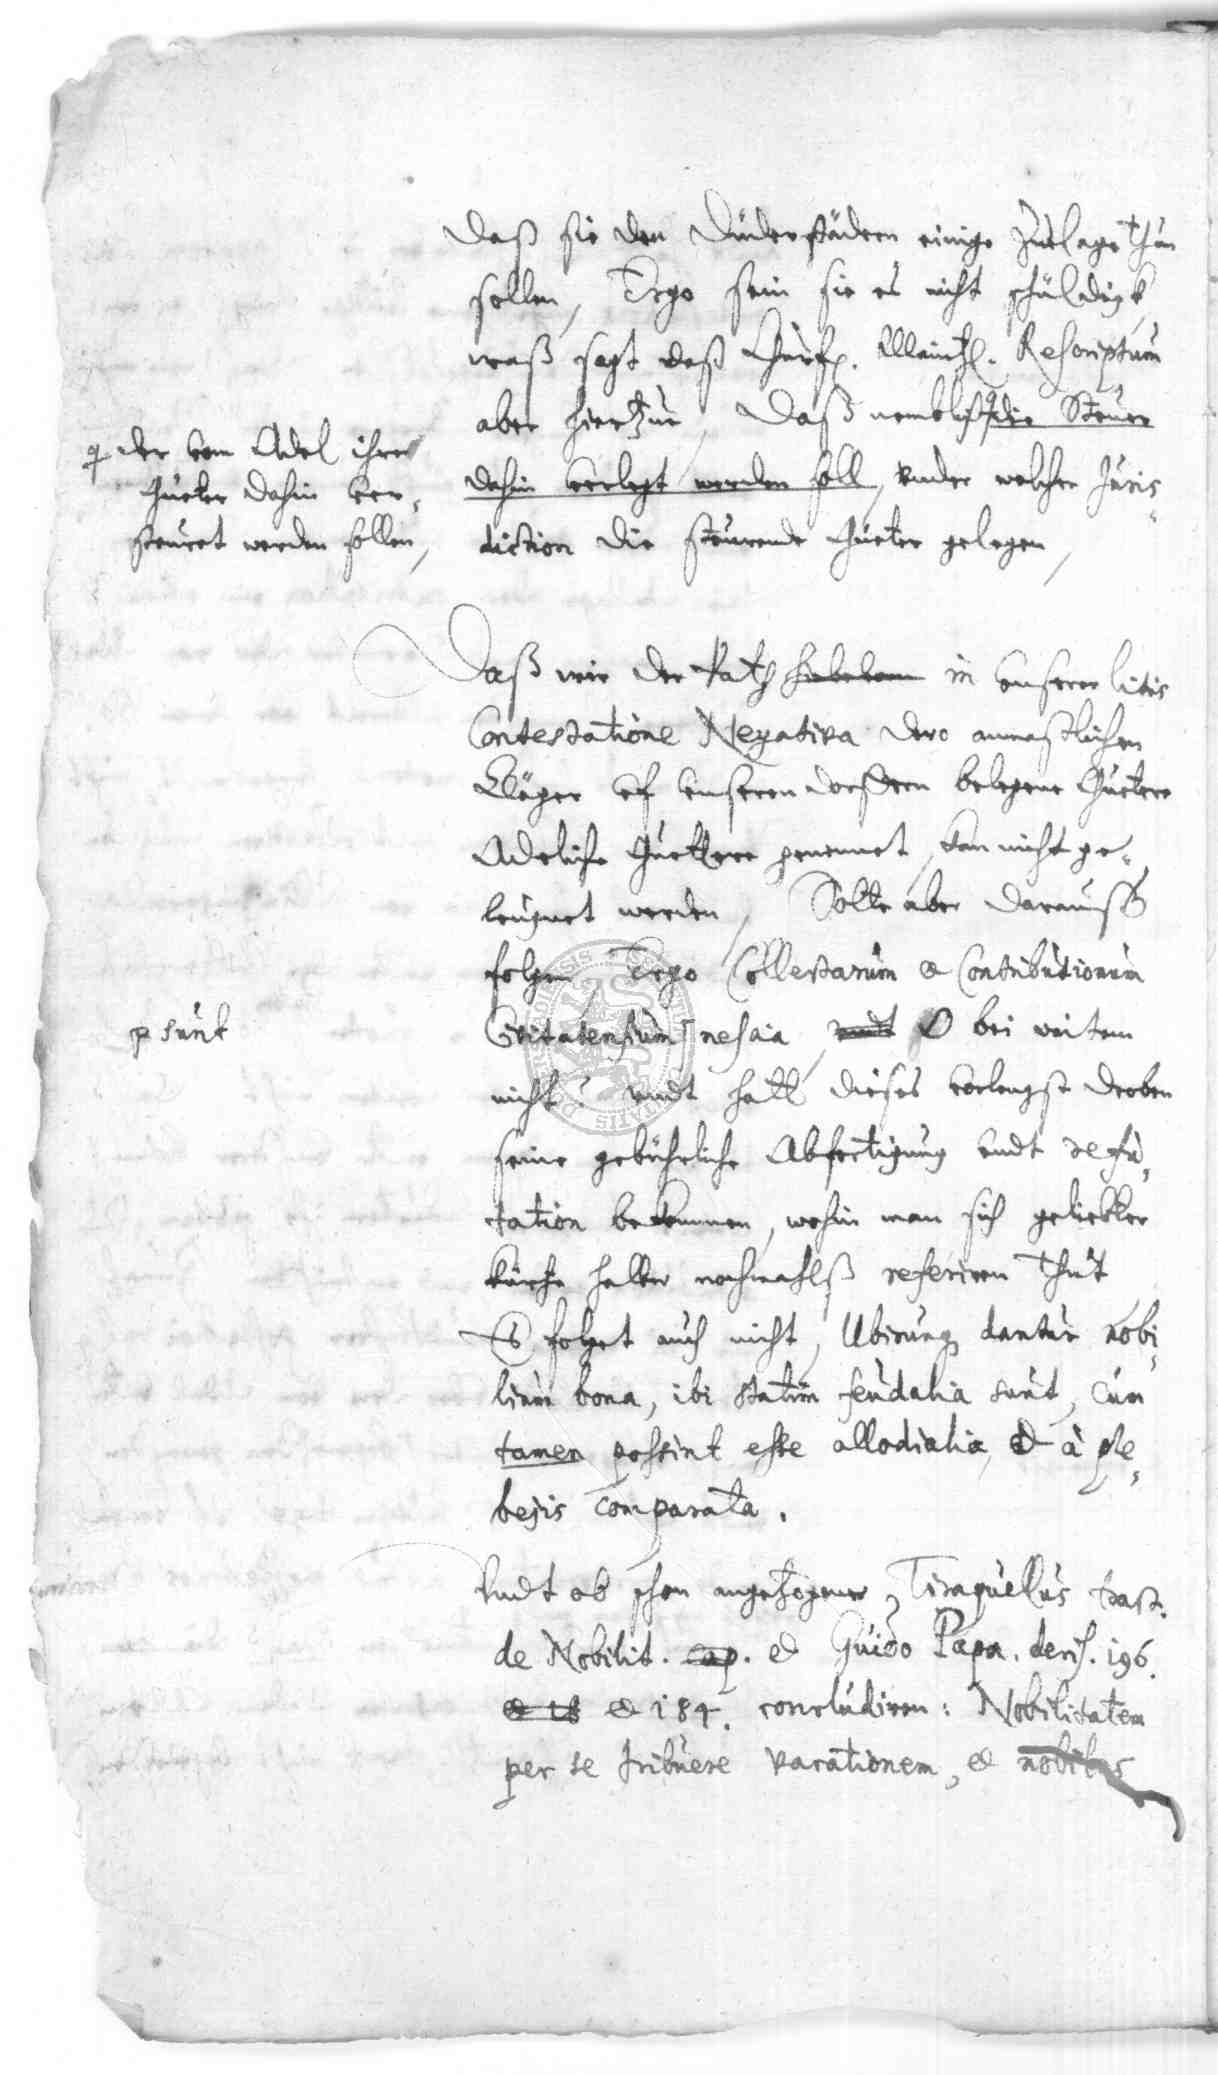 daß sie den Duderstädern einige Zulage thun
sollen, Ergo sein sie es nicht schuldigk,
waß sagt daß Churf. Maintz. Rescriptum
aber hiertzue, daß nemblich die Steuer
dahin verlegt werden soll, under welcher Juris-
diction die steurende Gueter gelegen,
der vom Adel ihre
Gueter dahin ver-
steuret werden sollen,
Daß wir der Rath habeben in unserer litis
Contestatione Negativa dero anmaßlichen
Kläger uf unseren dorffern belegene Guetere
Adeliche Guettere genennet, kan nicht ge-
leugnet werden, Solte aber darauß
folgen Ergo Collectarum et Contributionum
Civitatensium nescia, undt O bei weitem
sunt
nicht! undt hatt dieses vorlengst droben
seine gebührliche Abfertigung undt refu-
tation bekommen, wohin man sich geliebter
kürtze halber nochmahlß referiren thut
Es folget auch nicht, Ubicunq dantur nobi-
lium bona, ibi statim feudalia sunt, cum
tamen possint esse allodialia, et à ple-
bejis comparata.
Undt ob schon angetzogener Tiraquellus tract.
de Nobilit. cap. et Guido Papa. decis. 196.
et 18 et 184. concludiren: Nobilitatem
per se tribuere vacationem, et nobiles